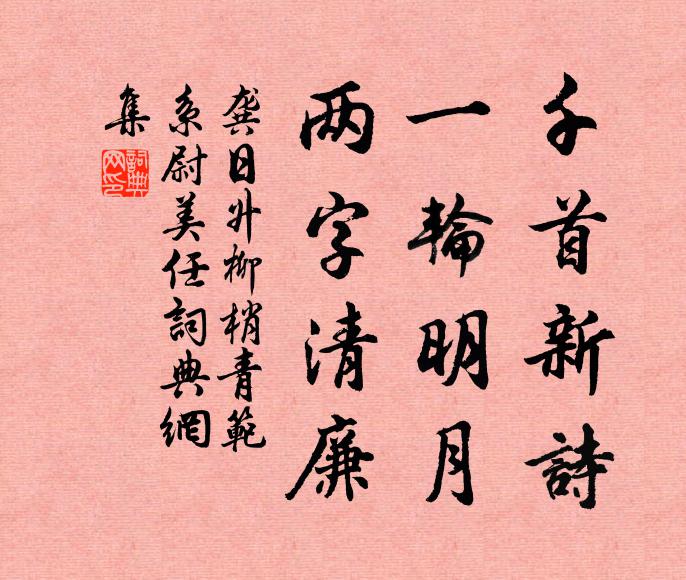 千首新詩
一輪明月
两字清廉
龔日升柳梢青範
系尉美任詞典網
集
詞典
网印